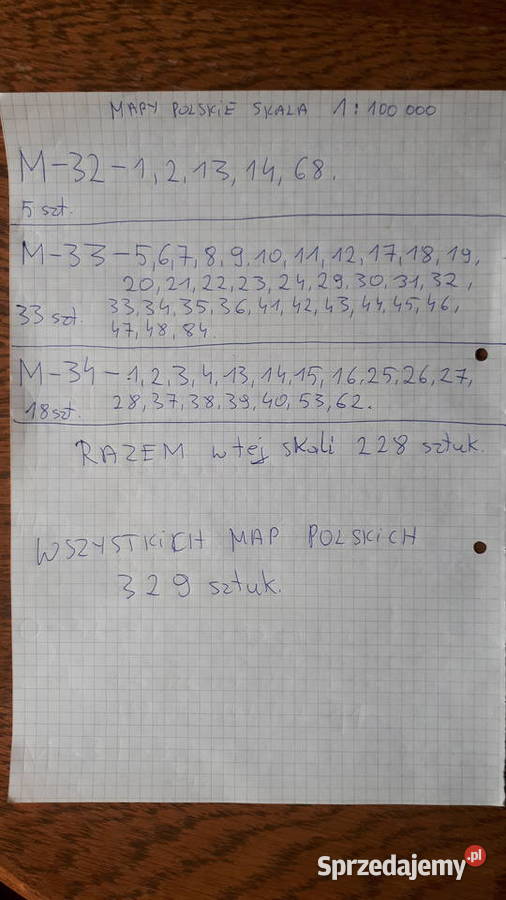 MAPY POLSKIE SKALA 1:100 000
M-32-1, 2, 13, 14, 68.
5 szt.
M-33-5,6,7,8,9,10,11,12,17,18,19,
20,21,22,23,24,29,30,31,32,
33 szt. 33,34,35,36,41,42,43,44,45,46,
47,48,84.
M-34-1,2,3,4,13,14,15,16,25,26,27,
18szt. 28,37,38,39,40,53,62.
RAZEM w tej skali 228 sztuk.
WSZYSTKICH MAP POLSKICH
329 sztuk.
Sprzedajemy.pl